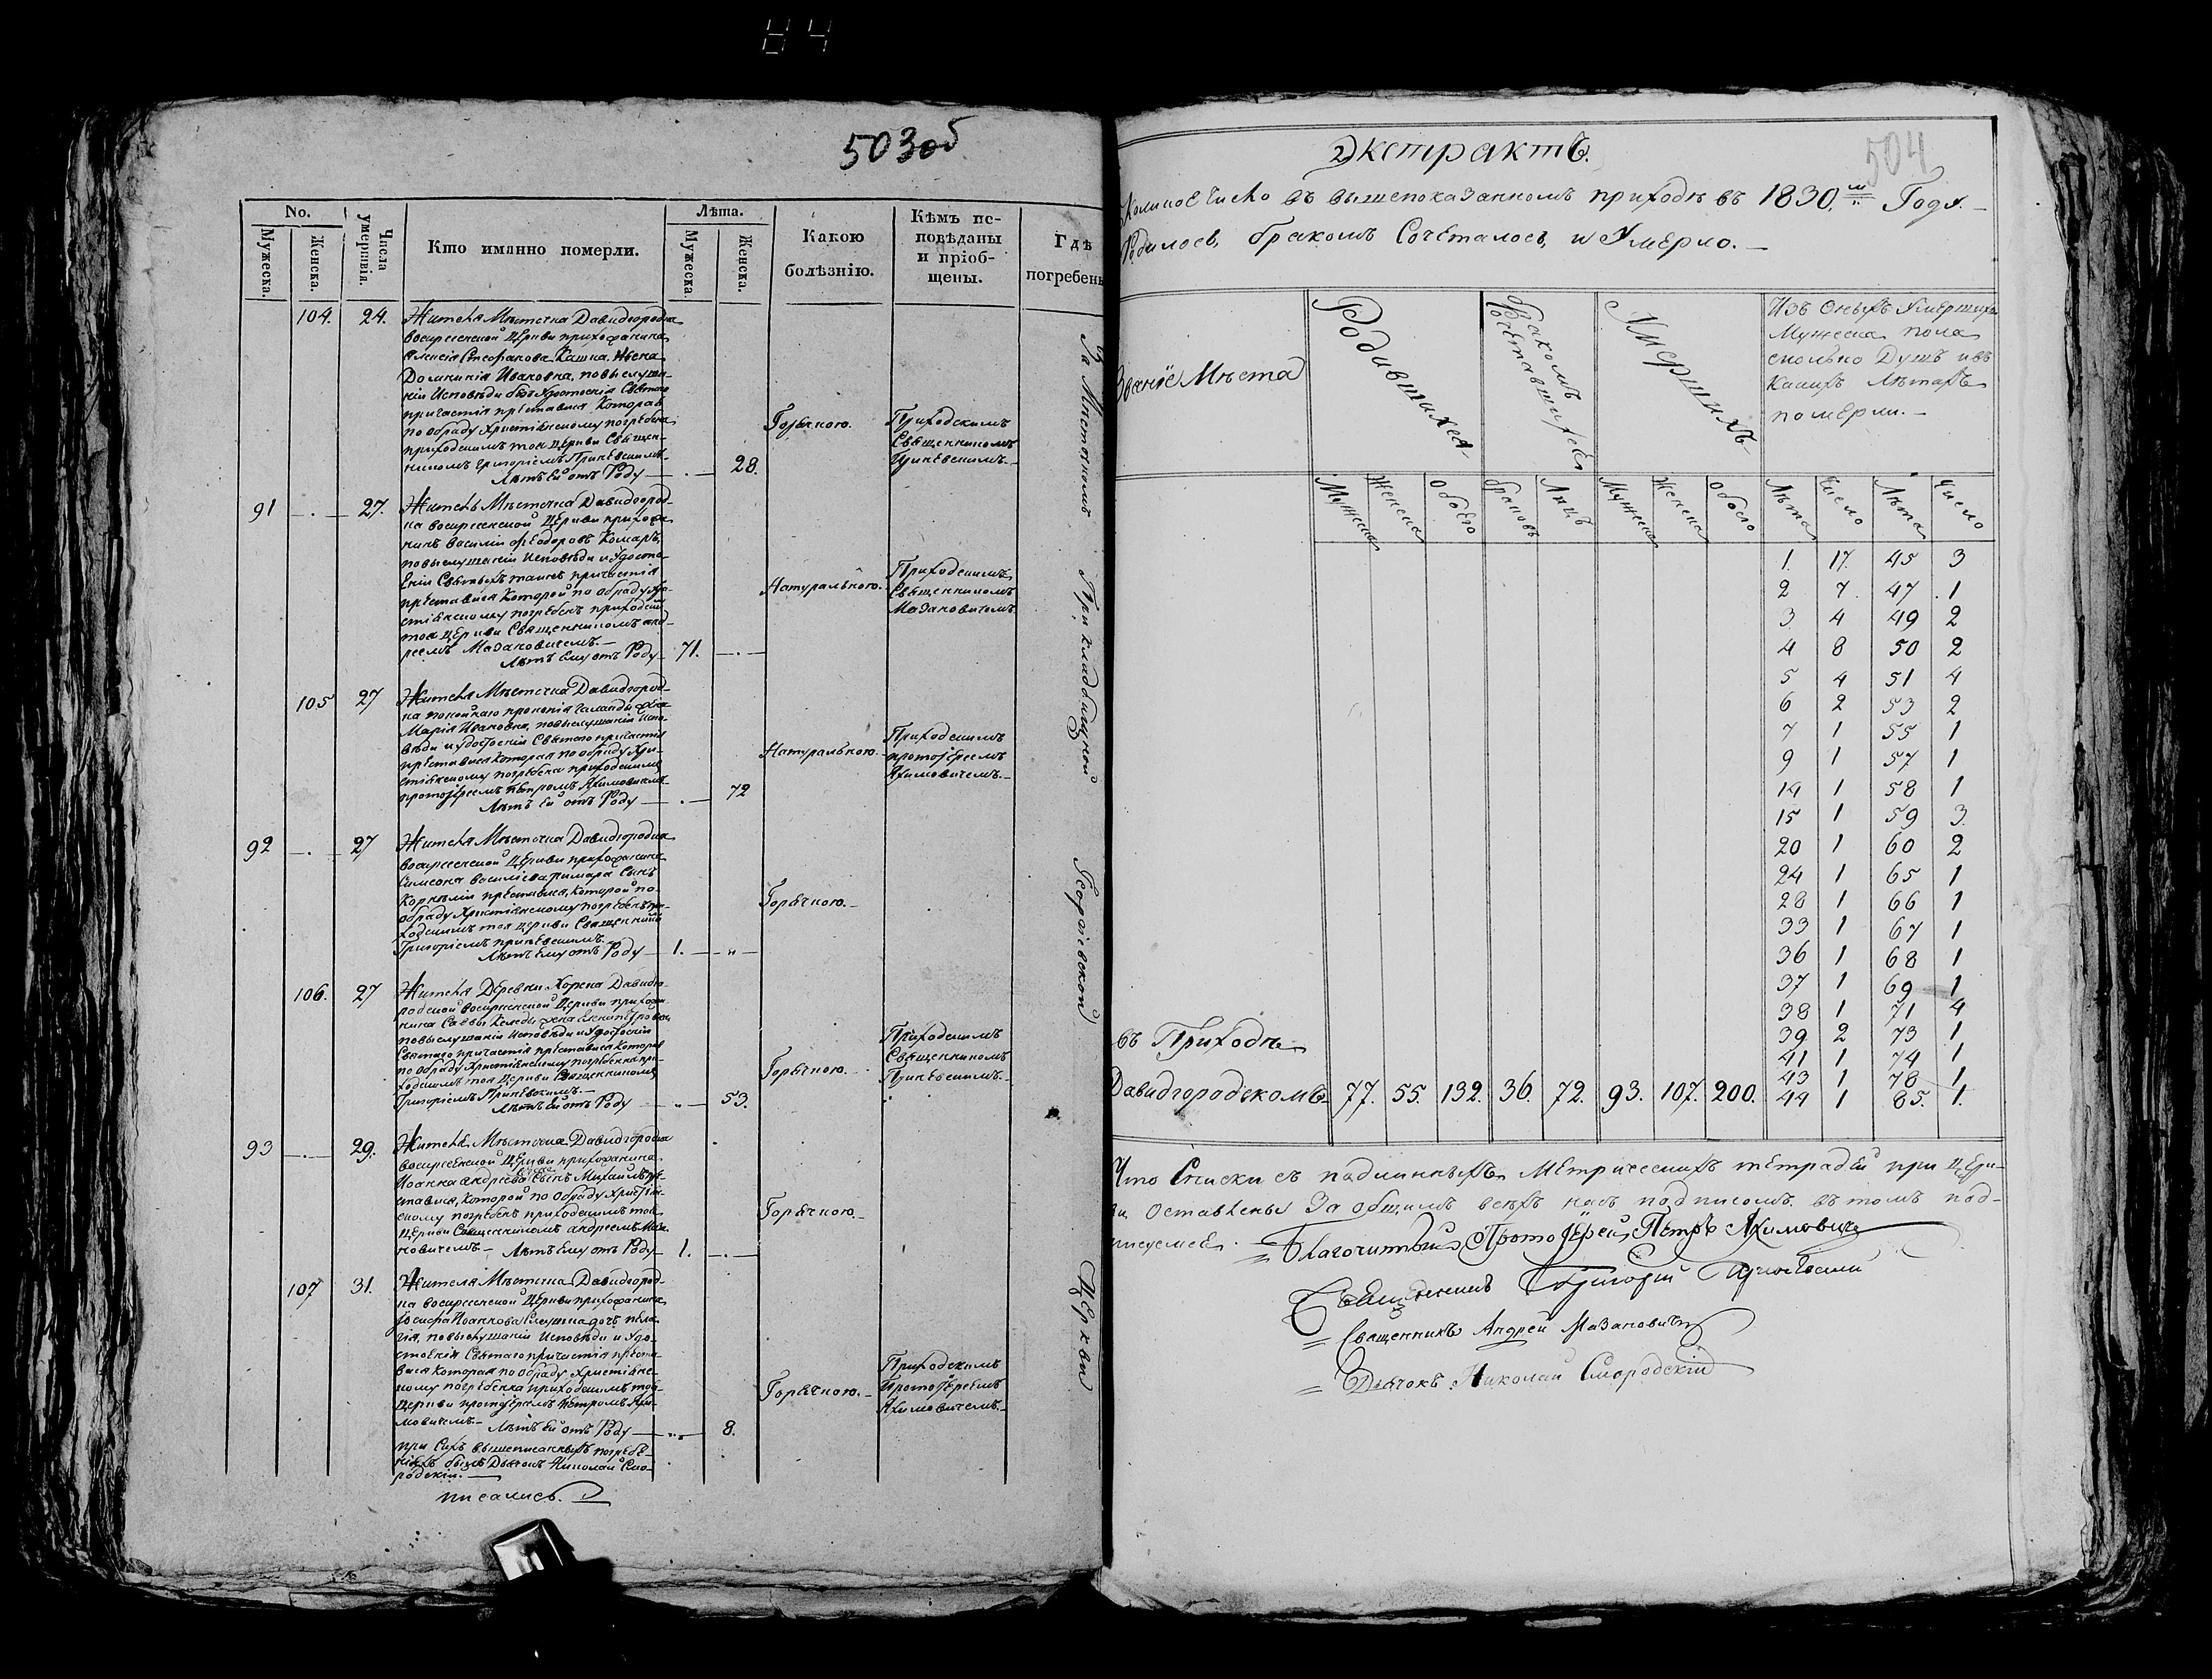 84
503об
No.
Мужеска.
Женска.
Числа умершвія.
Кто имянно померли.
Лѣта.
Мужеска
Женска.
Какою
болѣзнію.
Кѣмъ ис-
повѣданы
и пріоб-
щены.
Гдѣ
погребены
104. 24. Жителя Мѣстечка Давидгородка
воскресенской Церкви прихожанина
Стефанова Кашка жена
Домникія Ивановна, по выслуша-
ніи Исповѣди
причастія преставися Которая
по обряду Христіянскому погребена
приходскимъ тоя Церкви Священ-
никомъ Григоріемъ
Лѣтъ Ей отъ Роду — . — 28.
Горячкою.
Приходскимъ
Священникомъ
91 — . — 27. Житель Мѣстечка Давидгород-
ка воскресенской Церкви прихожа-
нинъ Василій Феодоровъ Комаръ,
по выслушаніи Исповѣди и Удосто-
еніи Святыхъ таинъ причастія
преставися Которой по обряду Хри-
стіянскому погребенъ приходскимъ
тоя Церкви Священникомъ Анд-
реемъ Мазановичемъ.—
Лѣтъ Ему отъ Роду 71. — . —
Натуральною.
Приходскимъ
Священникомъ
Мазановичемъ
105 27 Жителя Мѣстечка Давидгород-
ка покойнаго Прокопія жена
Марія Ивановна, по выслушаніи Испо-
вѣди и удостоеніи Святаго причастія
преставися Которая по обряду Хри-
стіянскому погребена приходскимъ
протоіереемъ Петромъ Якимовичемъ
Лѣтъ Ей отъ Роду — . — 72
Натуральною.
Приходскимъ
протоіереемъ
Якимовичемъ.—
92 — . — 27 Жителя Мѣстечка Давидгородка
воскресенской Церкви прихожанина
Симеона Василіева Римара Сынъ
Корнилій преставися, Которой по
обряду Христіянскому погребенъ при-
ходскимъ тоя Церкви Священникомъ
Григоріемъ
Лѣтъ Ему отъ Роду — 1. — „ —
Горячкою.—
106. 27 Жителя Деревни Хорска Давидго-
родской воскресенской Церкви прихожа-
нина Саввы жена
по выслушаніи Исповѣди и Удостоеніи
Святаго причастія преставися Которая
по обряду Христіянскому погребенна при-
ходскимъ тоя Церкви Священникомъ
Григоріемъ
Лѣтъ Ей отъ Роду — „ — 53.
Горячкою.—
Приходскимъ
Священникомъ
93 — . — 29. Жителя Мѣстечка Давидгородка
воскресенской Церкви прихожанина
Иоанна Андреева Сынъ Михаилъ пре-
ставися, Которой по обряду Христіян-
скому погребенъ приходскимъ тоя
Церкви Священникомъ Андреемъ Маза-
новичемъ — Лѣтъ Ему отъ Роду 1. — . —
Горячкою.—
107 31. Жителя Мѣстечка Давидгород-
ка воскресенской Церкви прихожанина
Иосифа Иоаннова дочь Пела-
гія, по выслушаніи Исповѣди и Удо-
стоенія Святаго причастія преста-
вися Которая по обряду Христіянс-
кому погребенна приходскимъ тоя
Церкви протоіереемъ Петромъ Яки-
мовичемъ.— Лѣтъ Ей отъ Роду — „ — 8.
Горячкою.—
Приходскимъ
Протоіереемъ
Якимовичемъ.—
при Сихъ вышеписанныхъ погребе-
ніяхъ былъ Дьячокъ Николай Смо-
родскій.—
писались.
На Мѣстечкомъ При кладбищной Георгіевской Церкви
504
Экстрактъ.
Коликое Число въ вышепоказанномъ приходѣ въ 1830.м Году.—
Родилось, бракомъ Сочеталось, и Умерло.—
Званіе Мѣста
Родившихся
бракомъ Сочетавшихся
Умершихъ
Изъ Оныхъ Умершихъ
Мужеска пола
сколько Душъ и въ
Какихъ Лѣтахъ
померли.—
Мужеска Женска Обоего браковъ Лицъ Мужеска Женска Обоего Лѣта Число Лѣта Число
1. 17. 45 3
2 7. 47 1
3 4 49 2
4 8 50 2
5 4 51 4
6 2 53 2
7 1 55 1
9 1 57 1
14 1 58 1
15 1 59 3
20 1 60 2
24 1 65 1
28 1 66 1
33 1 67 1
36 1 68 1
37 1 69 1
38 1 71 4
39 2 73 1
41 1 74 1
43 1 78 1
44 1 85. 1.
въ Приходѣ
Давидгородскомъ 77. 55. 132. 36. 72. 93. 107. 200.
Что Списки съ подлинныхъ Метрическихъ тетрадей при Церк-
ви Оставлены За общимъ всѣхъ насъ подписомъ въ томъ под-
писуемся.
Благочинный Протоіерей Петръ Якимовичъ
Священникъ Григорій
Священникъ Андрей Мазановичъ
Дьячокъ Николай Смородскій